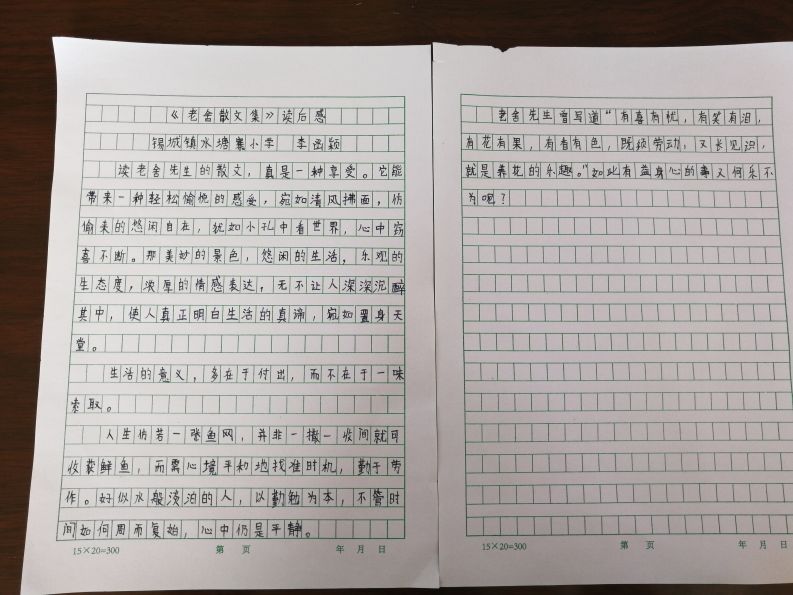 《老舍散文集》读后感
锡城镇水塘寨小学 李函颖
读老舍先生的散文，真是一种享受。它能
带来一种轻松愉悦的感受，宛如清风拂面，仿
偷来的悠闲自在，犹如小孔中看世界，心中窃
喜不断。那美妙的景色，悠闲的生活，乐观的
生态度，浓厚的情感表达，无不让人深深沉醉
其中，使人真正明白生活的真谛，宛如置身天
堂。
生活的意义，多在于付出，而不在于一味
索取。
人生仿若一张鱼网，并非一撒一收间就可
收获鲜鱼，而需心境平和地找准时机，勤于劳
作。好似水般淡泊的人，以勤勉为本，不管时
间如何周而复始，心中仍是平静。
15×20=300 第 页 年 月 日
老舍先生曾写道“有喜有忧，有笑有泪，
有花有果，有香有色，既须劳动，又长见识，
就是养花的乐趣。”如此有益身心的事又何乐不
为呢？
15×20=300 第 页 年 月 日